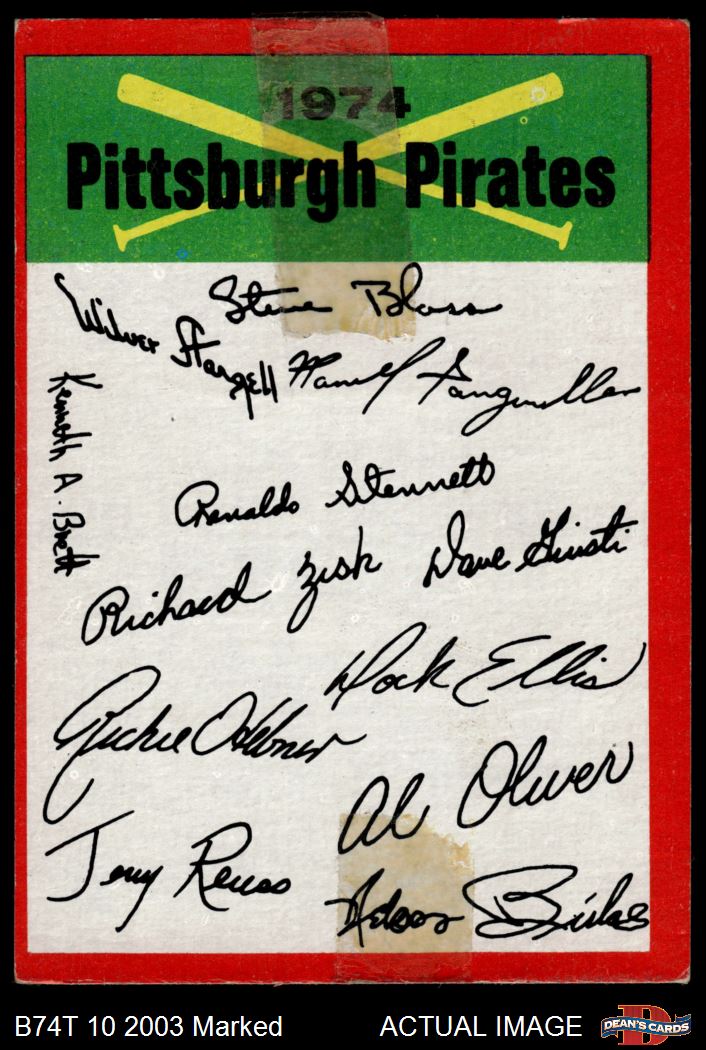 1974
Pittsburgh Pirates
Steve Blass
Wilver Stargell
Manuel Sanguillen
Kenneth A. Brett
Renaldo Stennett
Richard Zisk
Dave Giusti
Dock Ellis
Richie Hebner
Al Oliver
Jerry Reuss
Nelson Briles
B74T 10 2003 Marked
ACTUAL IMAGE
D
DEAN'S CARDS